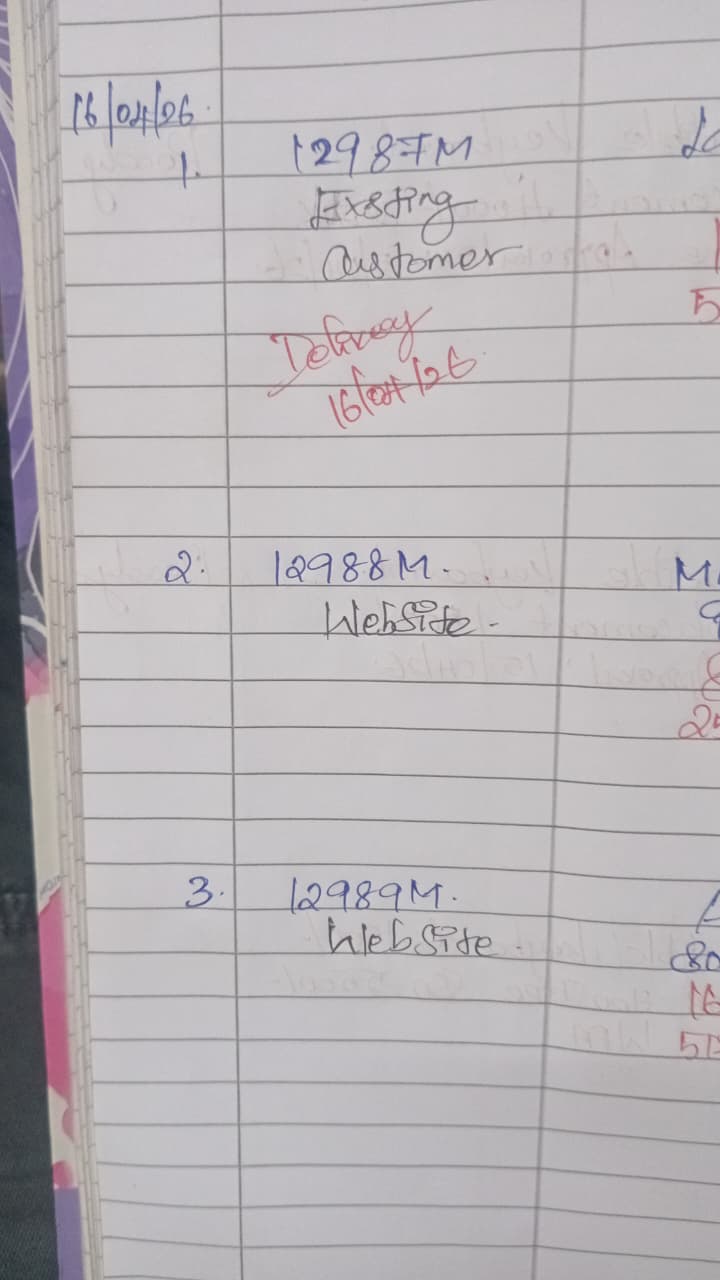 16/04/26.
1. 12987M
Existing
Customer
Delivery
16/04/26
2. 12988M.
Website -
3. 12989M.
Website
80
16